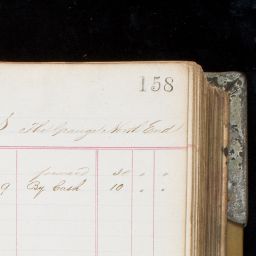 158
The Grange North End
forward 30 " "
9 By Cash 10 " "